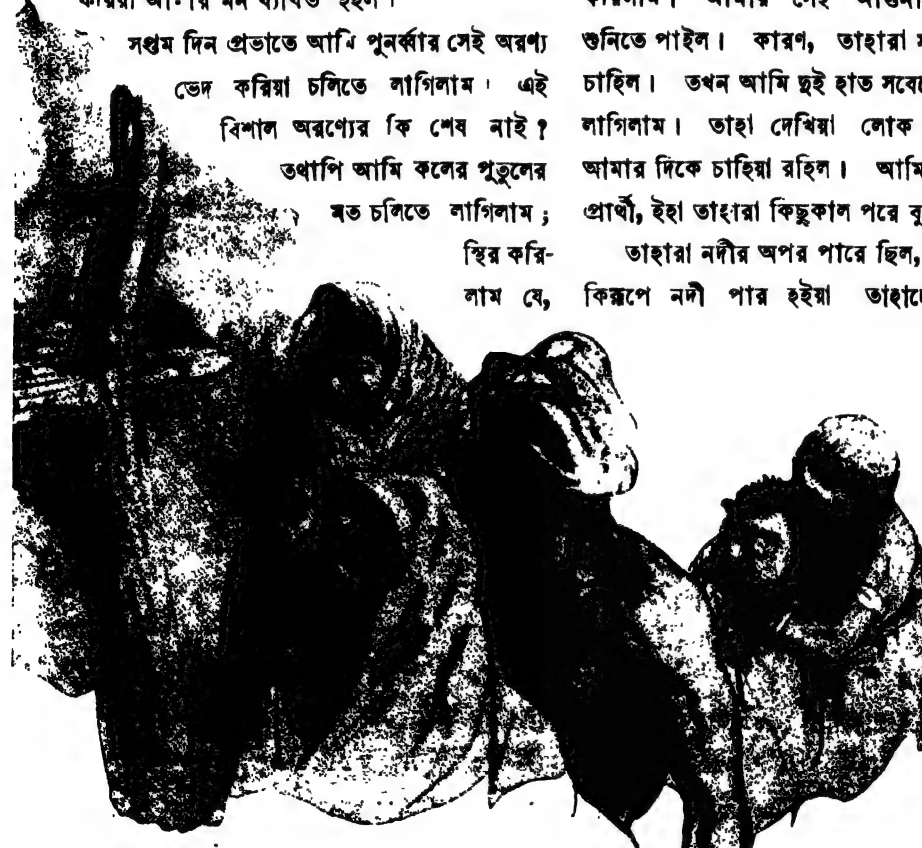 করিয়া আমার মন ব্যথিত হইল।
সপ্তম দিন প্রভাতে আমি পুনর্ব্বার সেই অরণ্য
ভেদ করিয়া চলিতে লাগিলাম। এই
বিশাল অরণ্যের কি শেষ নাই?
তথাপি আমি কলের পুতুলের
মত চলিতে লাগিলাম;
স্থির করি-
লাম যে,
শুনিতে পাইল। কারণ, তাহারা
চাহিল। তখন আমি দুই হাত
লাগিলাম। তাহা দেখিয়া লোক
আমার দিকে চাহিয়া রহিল। আমি
প্রার্থী, ইহা তাহারা কিছুকাল পরে
তাহারা নদীর অপর পারে ছিল,
কিরূপে নদী পার হইয়া